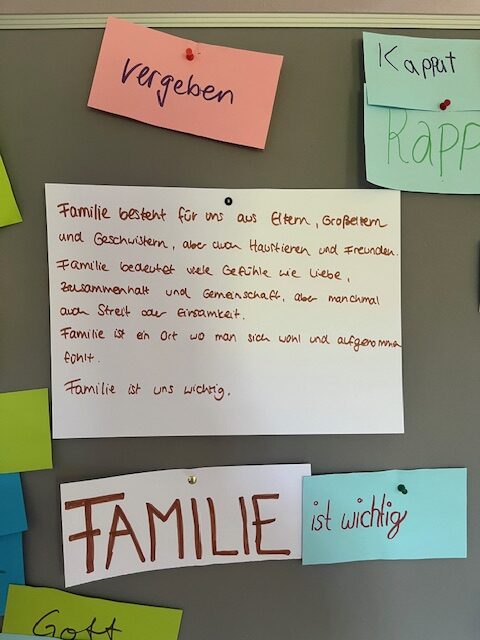 vergeben
Kapput
Kapp
Familie besteht für uns aus Eltern, Großeltern
und Geschwistern, aber auch Haustieren und Freunden.
Familie bedeutet viele Gefühle wie Liebe,
Zusammenhalt und Gemeinschaft, aber manchmal
auch Streit oder Einsamkeit.
Familie ist ein Ort wo man sich wohl und aufgenommen
fühlt.
Familie ist uns wichtig.
FAMILIE
ist wichtig
Gott